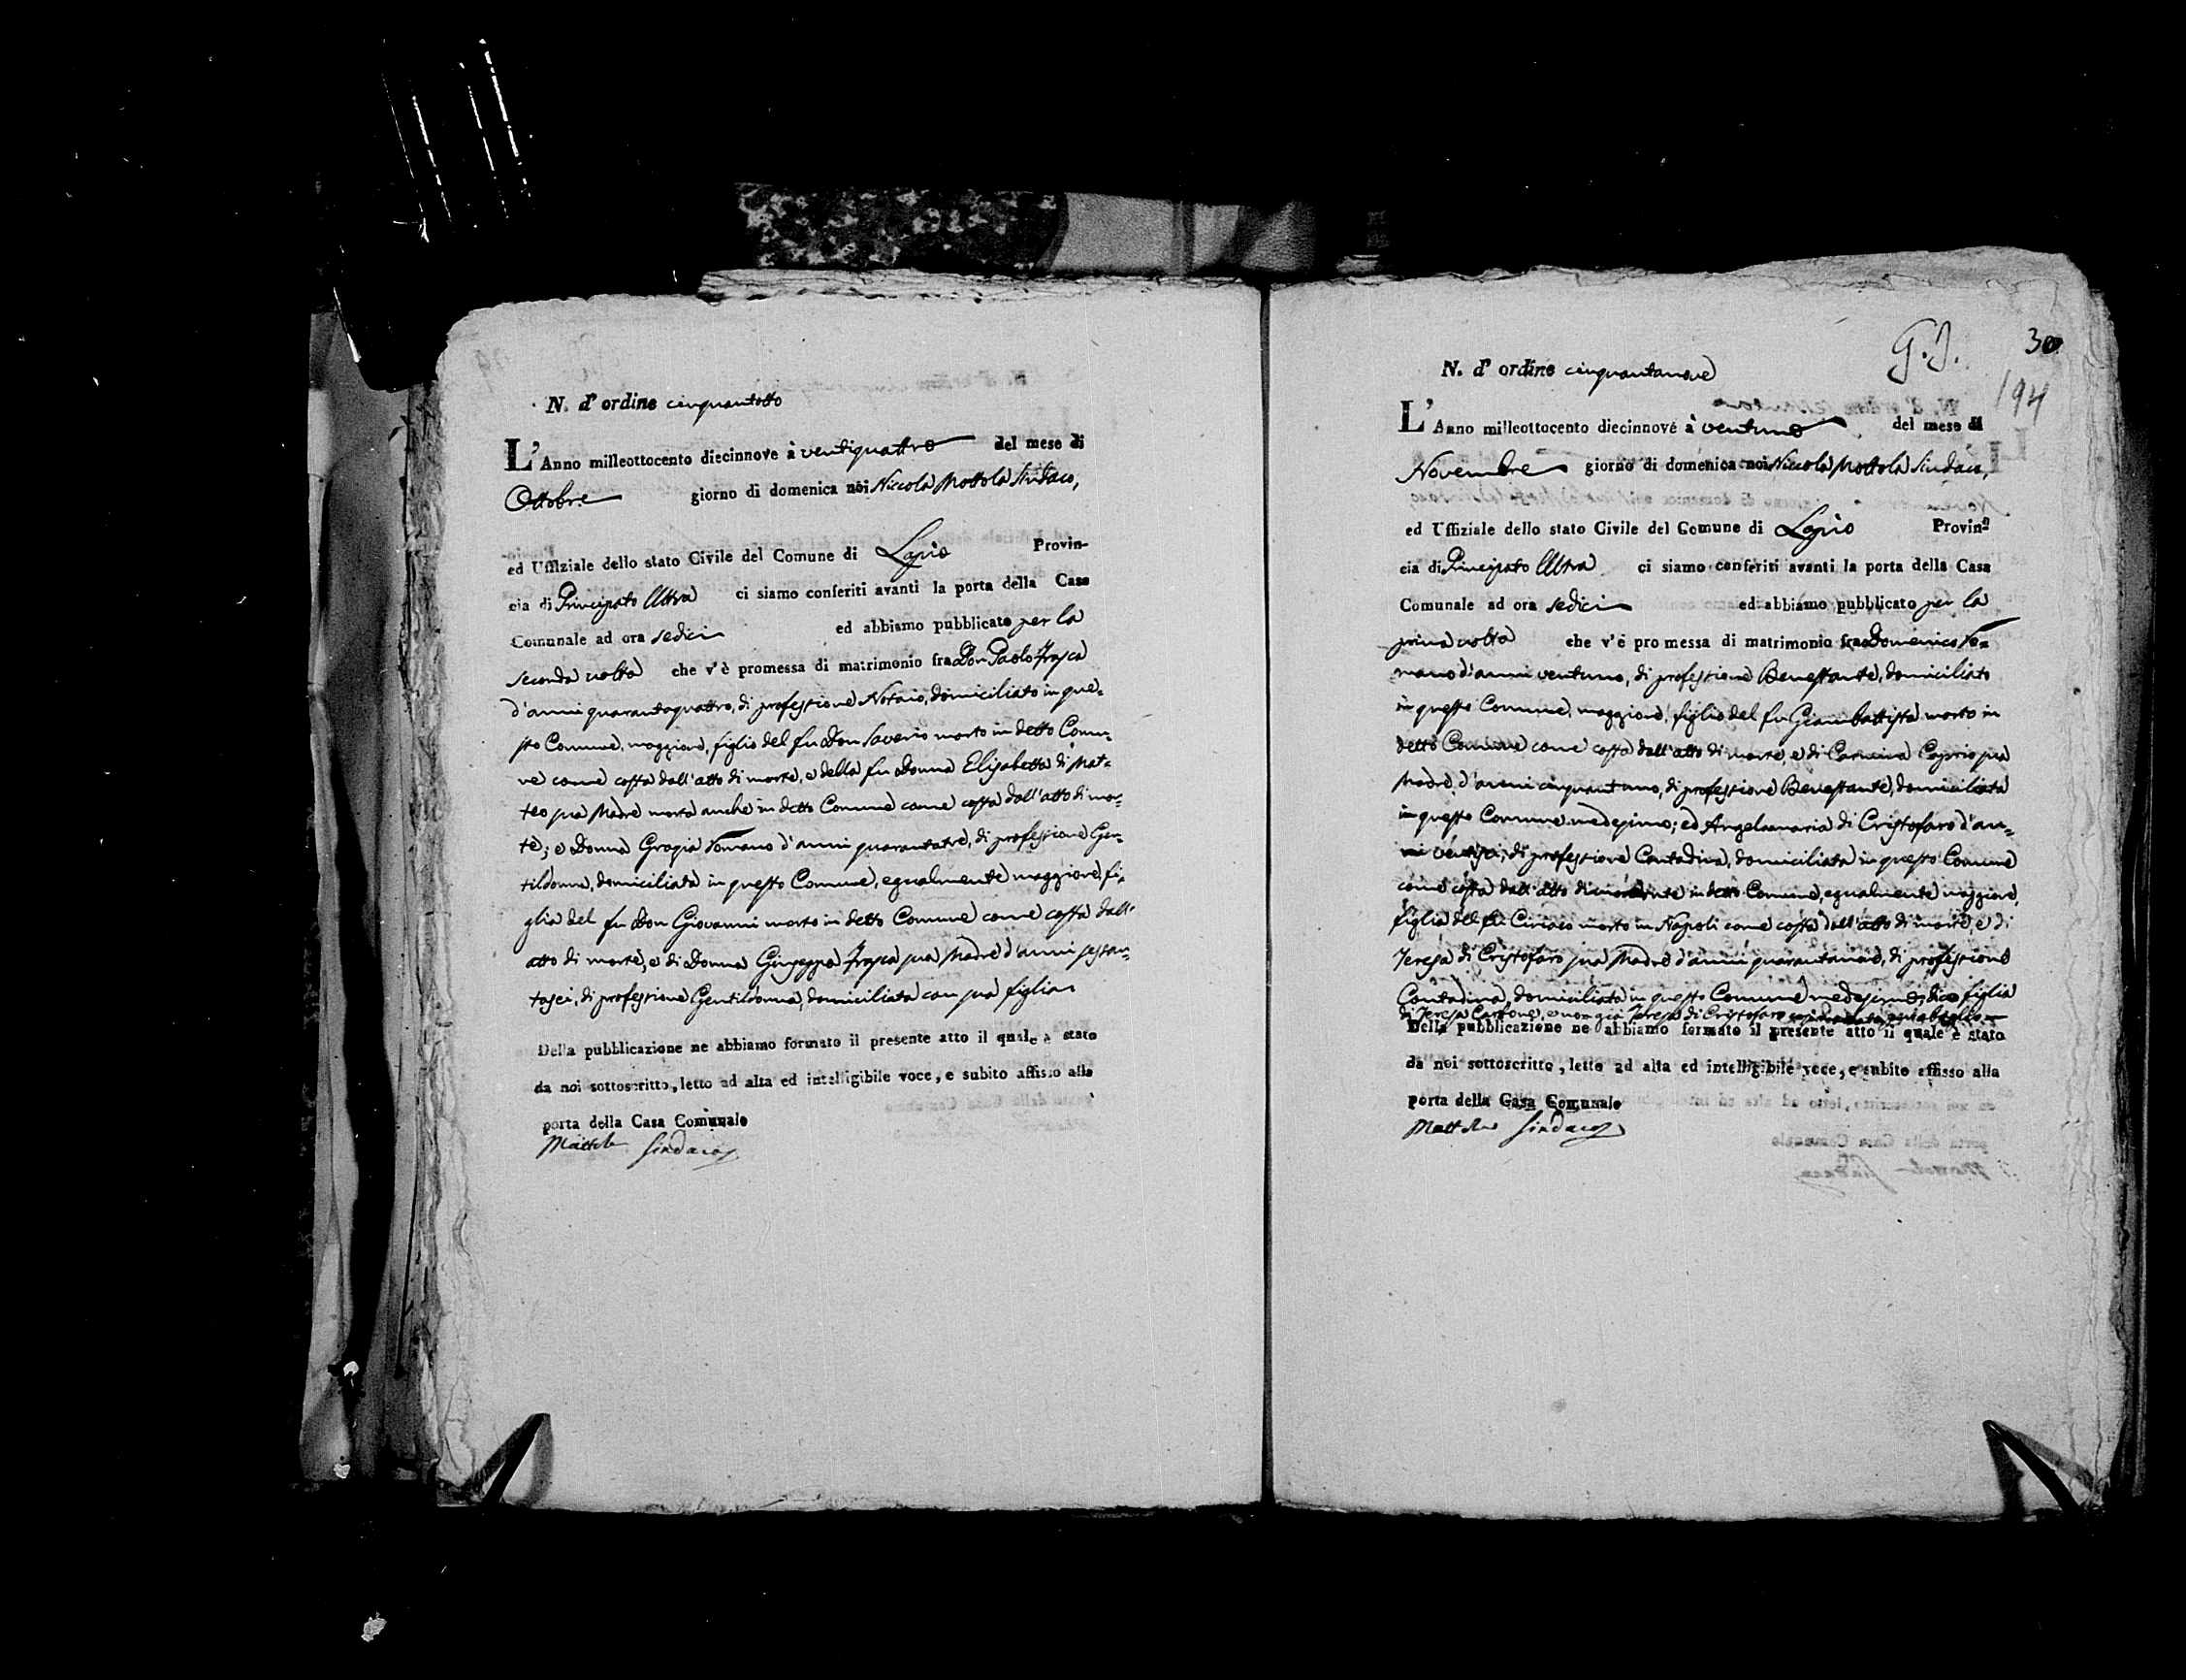 N. d' ordine cinquantotto
L' Anno milleottocento diecinnove à ventiquattro del mese di
Ottobre giorno di domenica noi Niccola Mottola Sindaco,
ed Uffiziale dello stato Civile del Comune di Lapio Provin-
cia di Principato Ultra ci siamo conferiti avanti la porta della Casa
Comunale ad ora sedici ed abbiamo pubblicato per la
seconda volta che v'è promessa di matrimonio fra Don Paolo Frasca
d'anni quarantaquattro, di professione Notaio, domiciliato in que-
sto Comune, maggiore, figlio del fu Don Saverio morto in detto Comu-
ne come costa dall'atto di morte, e della fu Donna Elisabetta di Mat-
teo sua Madre morta anche in detto Comune come costa dall'atto di mor-
te; e Donna Grazia Romano d'anni quarantatre, di professione Gen-
tildonna, domiciliata in questo Comune, egualmente maggiore, fi-
glia del fu Don Giovanni morto in detto Comune come costa dall'
atto di morte, e di Donna Giuseppa Frasca sua Madre d'anni sessan-
tasei, di professione Gentildonna, domiciliata con sua figlia
Della pubblicazione ne abbiamo formato il presente atto il quale è stato
da noi sottoscritto, letto ad alta ed intelligibile voce, e subito affisso alla
porta della Casa Comunale
Mottola Sindaco
G. J. 30
194
N. d' ordine cinquantanove
L' Anno milleottocento diecinnove à ventuno del mese di
Novembre giorno di domenica noi Niccola Mottola Sindaco,
ed Uffiziale dello stato Civile del Comune di Lapio Provin
cia di Principato Ultra ci siamo conferiti avanti la porta della Casa
Comunale ad ora sedici ed abbiamo pubblicato per la
prima volta che v'è promessa di matrimonio fra Domenico Ro-
mano d'anni ventuno, di professione Benestante, domiciliato
in questo Comune, maggiore, figlio del fu Giambattista morto in
detto Comune come costa dall'atto di morte, e di Carmina Caprio sua
Madre, d'anni cinquantuno, di professione Benestante, domiciliata
in questo Comune medesimo; ed Angelamaria di Cristofaro d'an-
ni ventisei, di professione Contadina, domiciliata in questo Comune
come costa dall'atto di in detto Comune, egualmente maggiore,
figlia del fu Ciriaco morto in Napoli come costa dall'atto di morte, e di
Teresa di Cristofaro sua Madre d'anni quarantanove, di professione
Contadina, domiciliata in questo Comune medesimo, dico figlia
di Teresa Carbone, e non già Teresa di Cristofaro
Della pubblicazione ne abbiamo formato il presente atto il quale è stato
da noi sottoscritto, letto ad alta ed intelligibile voce, e subito affisso alla
porta della Casa Comunale
Mottola Sindaco